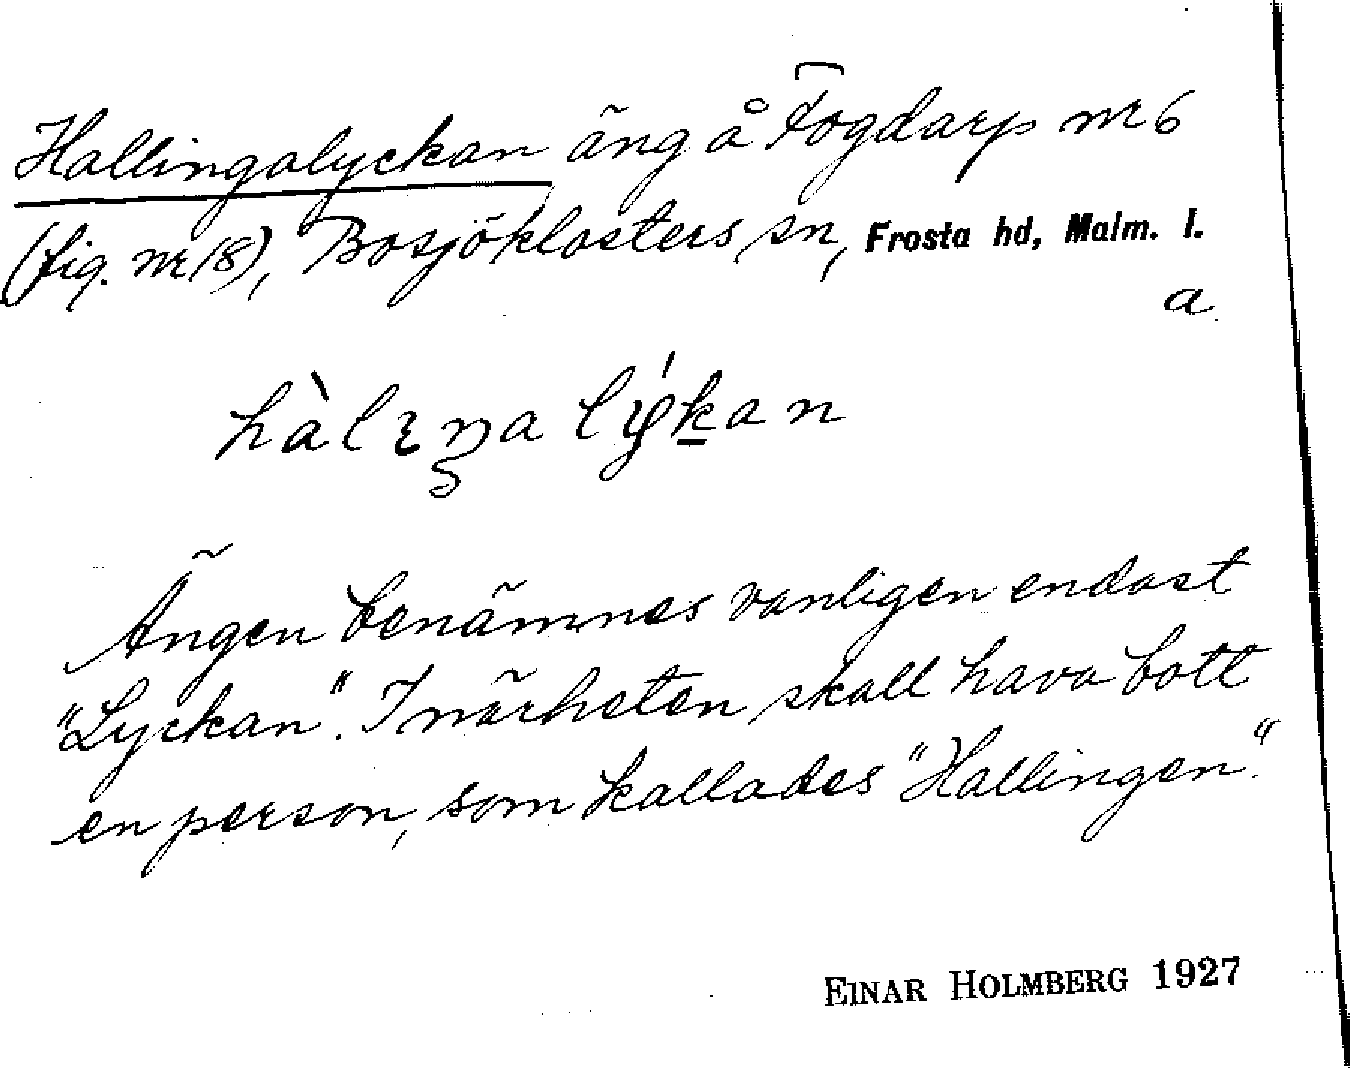 Hallingalyckan äng å Fogdarp nr 6
(fig. nr 18), Bosjöklosters sn, Frosta hd, Malm. l.
a
Ängen benämnes vanligen endast
"Lyckan". I närheten skall hava bott
en person, som kallades "Hallingen."
EINAR HOLMBERG 1927